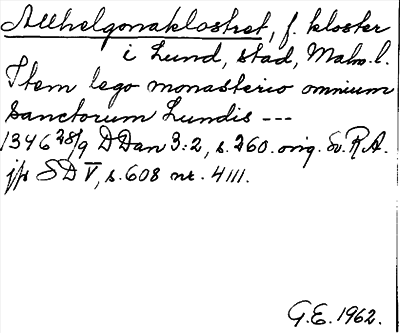 Allhelgonaklostret, f. kloster
i Lund, stad, Malm. l.
Item lego monasterio omnium
sanctorum Lundis ---
1346 28/9 DDan 3:2, s. 260. orig. Sv. R.A.
jfr SD V, s. 608 nr. 4111.
G.E. 1962.